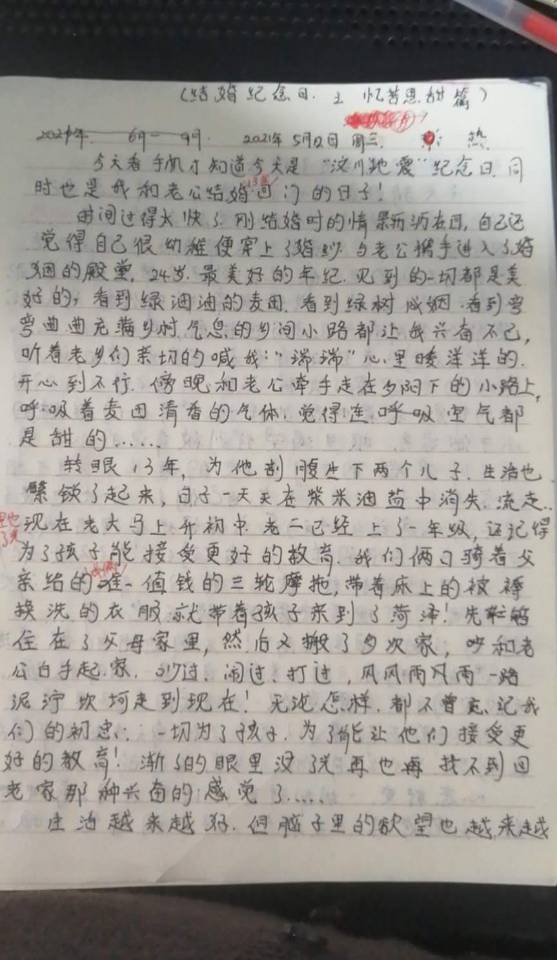 （结婚纪念日. 之 忆苦思甜篇）
2021年 2021年 5月12日 周三. 热.
今天看手机才知道今天是“汶川地震”纪念日. 同
时也是我和老公结婚13年过门的日子!
时间过得太快了. 刚结婚时的情景历历在目, 自己还
觉得自己很幼稚便穿上了婚纱 与老公携手进入了婚
姻的殿堂, 24岁. 最美好的年纪. 见到的一切都是美
好的, 看到绿油油的麦田. 看到绿树成姻. 看到弯
弯曲曲充满乡村气息的乡间小路都让我兴奋不已,
听着老乡们亲切的喊我:“瑞瑞”心里暖洋洋的.
开心到不行. 傍晚和老公牵手走在夕阳下的小路上,
呼吸着麦田清香的气体. 觉得连呼吸空气都
是甜的......
转眼13年, 为他剖腹生下两个儿子. 生活也
繁锁了起来, 日子一天天在柴米油盐中消失. 流走..
现在老大马上升初中. 老二已经上了一年级, 还记得
为了孩子能接受更好的教育. 我们俩口骑着父
亲给的唯一值钱的三轮摩拖, 带着床上的被褥
换洗的衣服就带着孩子来到了菏泽! 先
住在了父母家里, 然后又搬了多次家, 和老
公白手起家. 吵过. 闹过. 打过, 风风雨风雨一路
泥泞坎坷走到现在! 无论怎样. 都不曾忘记我
们的初衷: 一切为了孩子. 为了能让他们接受更
好的教育! 渐了的眼里没了光再也再找不到回
老家那种兴奋的感觉了.....
生活越来越好. 但脑子里的欲望也越来越